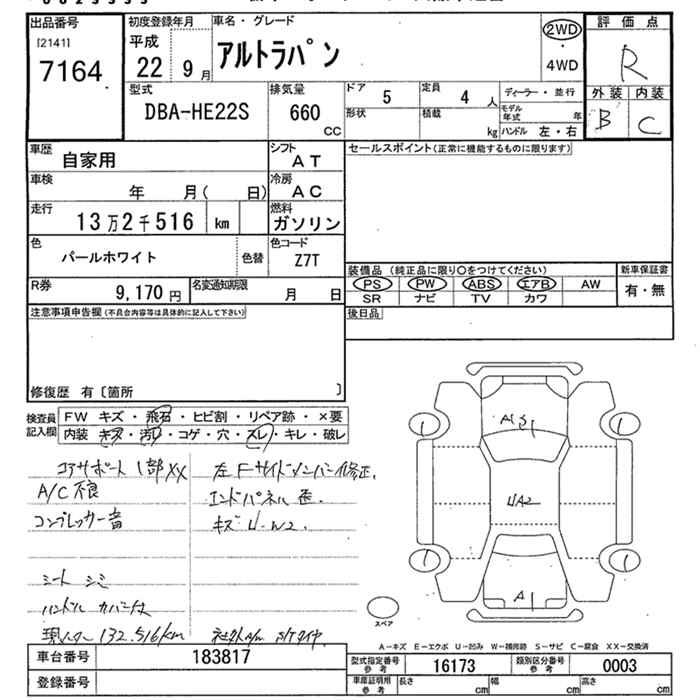 出品番号
[2141]
7164
初度登録年月
平成
22 9月
車名・グレード
アルトラパン
2WD
・
4WD
評価点
R
外装 内装
B C
型式
DBA-HE22S
排気量
660
CC
ドア
5
定員
4人
形状
積載
kg
ディーラー・並行
モデル年式 年
ハンドル 左・右
車歴
自家用
シフト
AT
車検
年 月( 日)
冷房
AC
走行
13万2千516 km
燃料
ガソリン
色
パールホワイト
色替
色コード
Z7T
R券
9,170円
名変通知期限
月 日
セールスポイント(正常に機能するものに限ります)
装備品(純正品に限り○をつけてください)
PS PW ABS エアB AW
SR ナビ TV カワ
新車保証書
有・無
後日品
注意事項申告欄(不具合内容等は具体的に記入して下さい)
修復歴 有〔箇所 〕
検査員記入欄
FW キズ・飛石・ヒビ割・リペア跡・×要
内装・キズ・汚れ・コゲ・穴・スレ・キレ・破レ
コアサポート 1部XX
A/C不良
コンプレッサー音
シート シミ
ハンドル カバー付
現メーター 132,516km
左Fサイドメンバー修正.
エンドパネル 歪.
キズ・U・W2.
A1 S1
UA2
A1
1
1
1
1
スペア
A-キズ E-エクボ U-凹み W-補修跡 S-サビ C-腐食 XX-交換済
車台番号
183817
登録番号
型式指定番号
参考
16173
類別区分番号
参考
0003
車庫証明用
参考
長さ cm
幅 cm
高さ cm